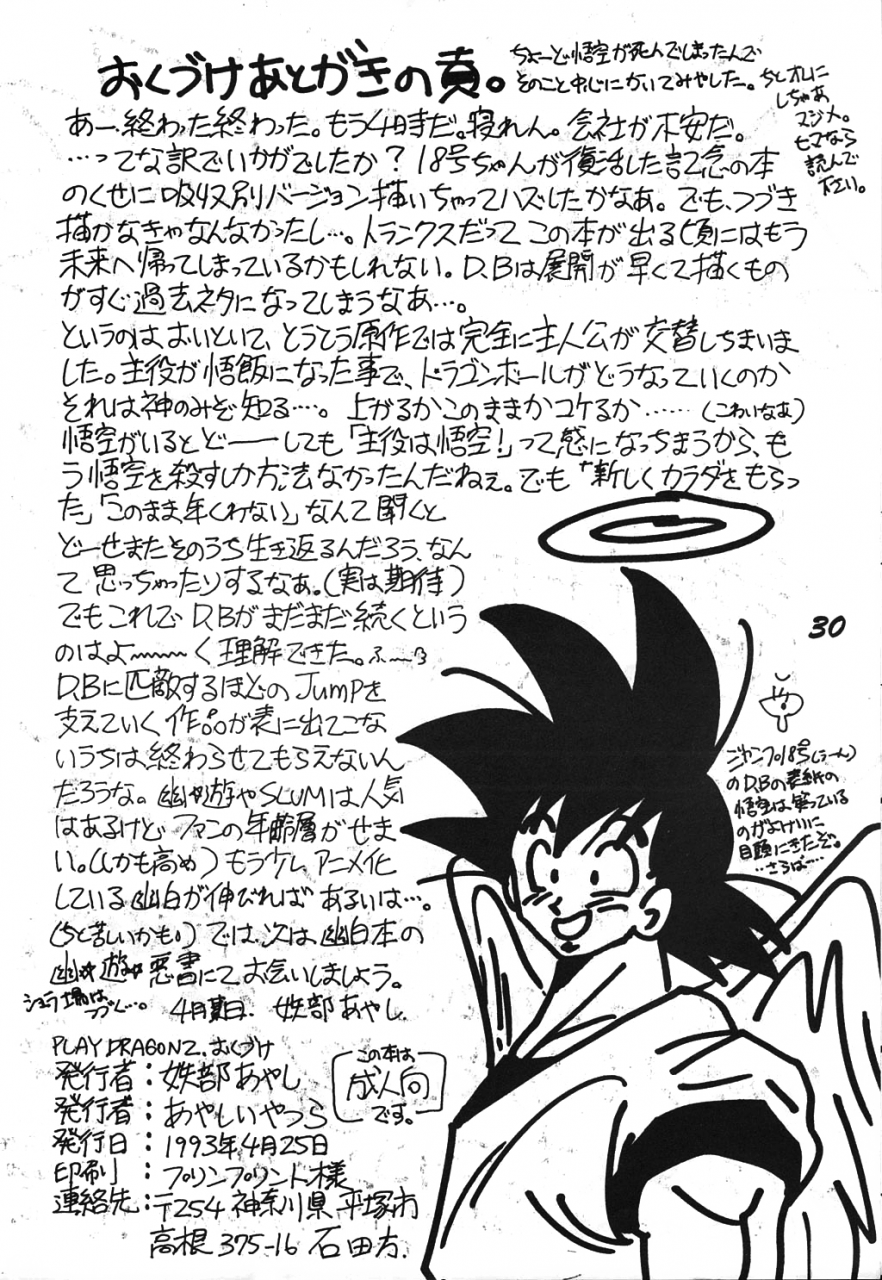 おくづけあとがきの頁。
ちょーど悟空が死んでしまったんで
そのこと中じにかいてみやした。ちとオレに
しちゃあ
マジメ。
ヒマなら
読んで
下さい。
あー、終わった終わった。もう4時だ。寝れん。会社が不安だ。
…ってな訳でいかがでしたか?18号ちゃんが復活した記念の本
のくせに吸収別バージョン描いちゃってハズしたかなあ。でも、つづき
描かなきゃなんなかったし…。トランクスだってこの本が出る頃にはもう
未来へ帰ってしまっているかもしれない。D.Bは展開が早くて描くもの
がすぐ過去ネタになってしまうなあ…。
というのはおいといて、とうとう原作では完全に主人公が交替しちまいま
した。主役が悟飯になった事で、ドラゴンボールがどうなっていくのか
それは神のみぞ知る…。上がるかこのままかコケるか……(こわいなあ)
悟空がいるとどーーしても「主役は悟空!」って感になっちまうから、も
う悟空を殺すしか方法なかったんだねぇ。でも「新しくカラダをもらっ
た」「このまま年くわない」なんて聞くと
どーせまたそのうち生き返るんだろう、なん
て思っちゃったりするなあ。(実は期待)
でもこれでD.Bがまだまだ続くという
のはよ〜〜く理解できた。ふーーぅ
D.Bに匹敵するほどのJumPを
支えていく作品が表に出てこな
いうちは、終わらせてもらえないん
だろうな。幽遊やSLUMは人気
はあるけどファンの年齢層がせま
い。(しかも高め)もうケレ、アニメ化
している幽白が伸びればあるいは…。
(ちと苦しいかも。)では、次は幽白本の
幽☆遊☆悪書にてお会いしましょう。
シュラ場は
つづく…。
4月夏日. 妖部あやし.
30
ジャンプ18号(うーん)
のD.Bの表紙の
悟空は、笑っている
のがよけいに
目頭にきたぞ。
…さらば…
PLAY DRAGON2.おくづけ
発行者:妖部あやし
発行者:あやしいやつら
発行日:1993年4月25日
印刷:プリンプリント様
連絡先:〒254 神奈川県平塚市
高根375-16 石田方.
この本は
成人向
です。